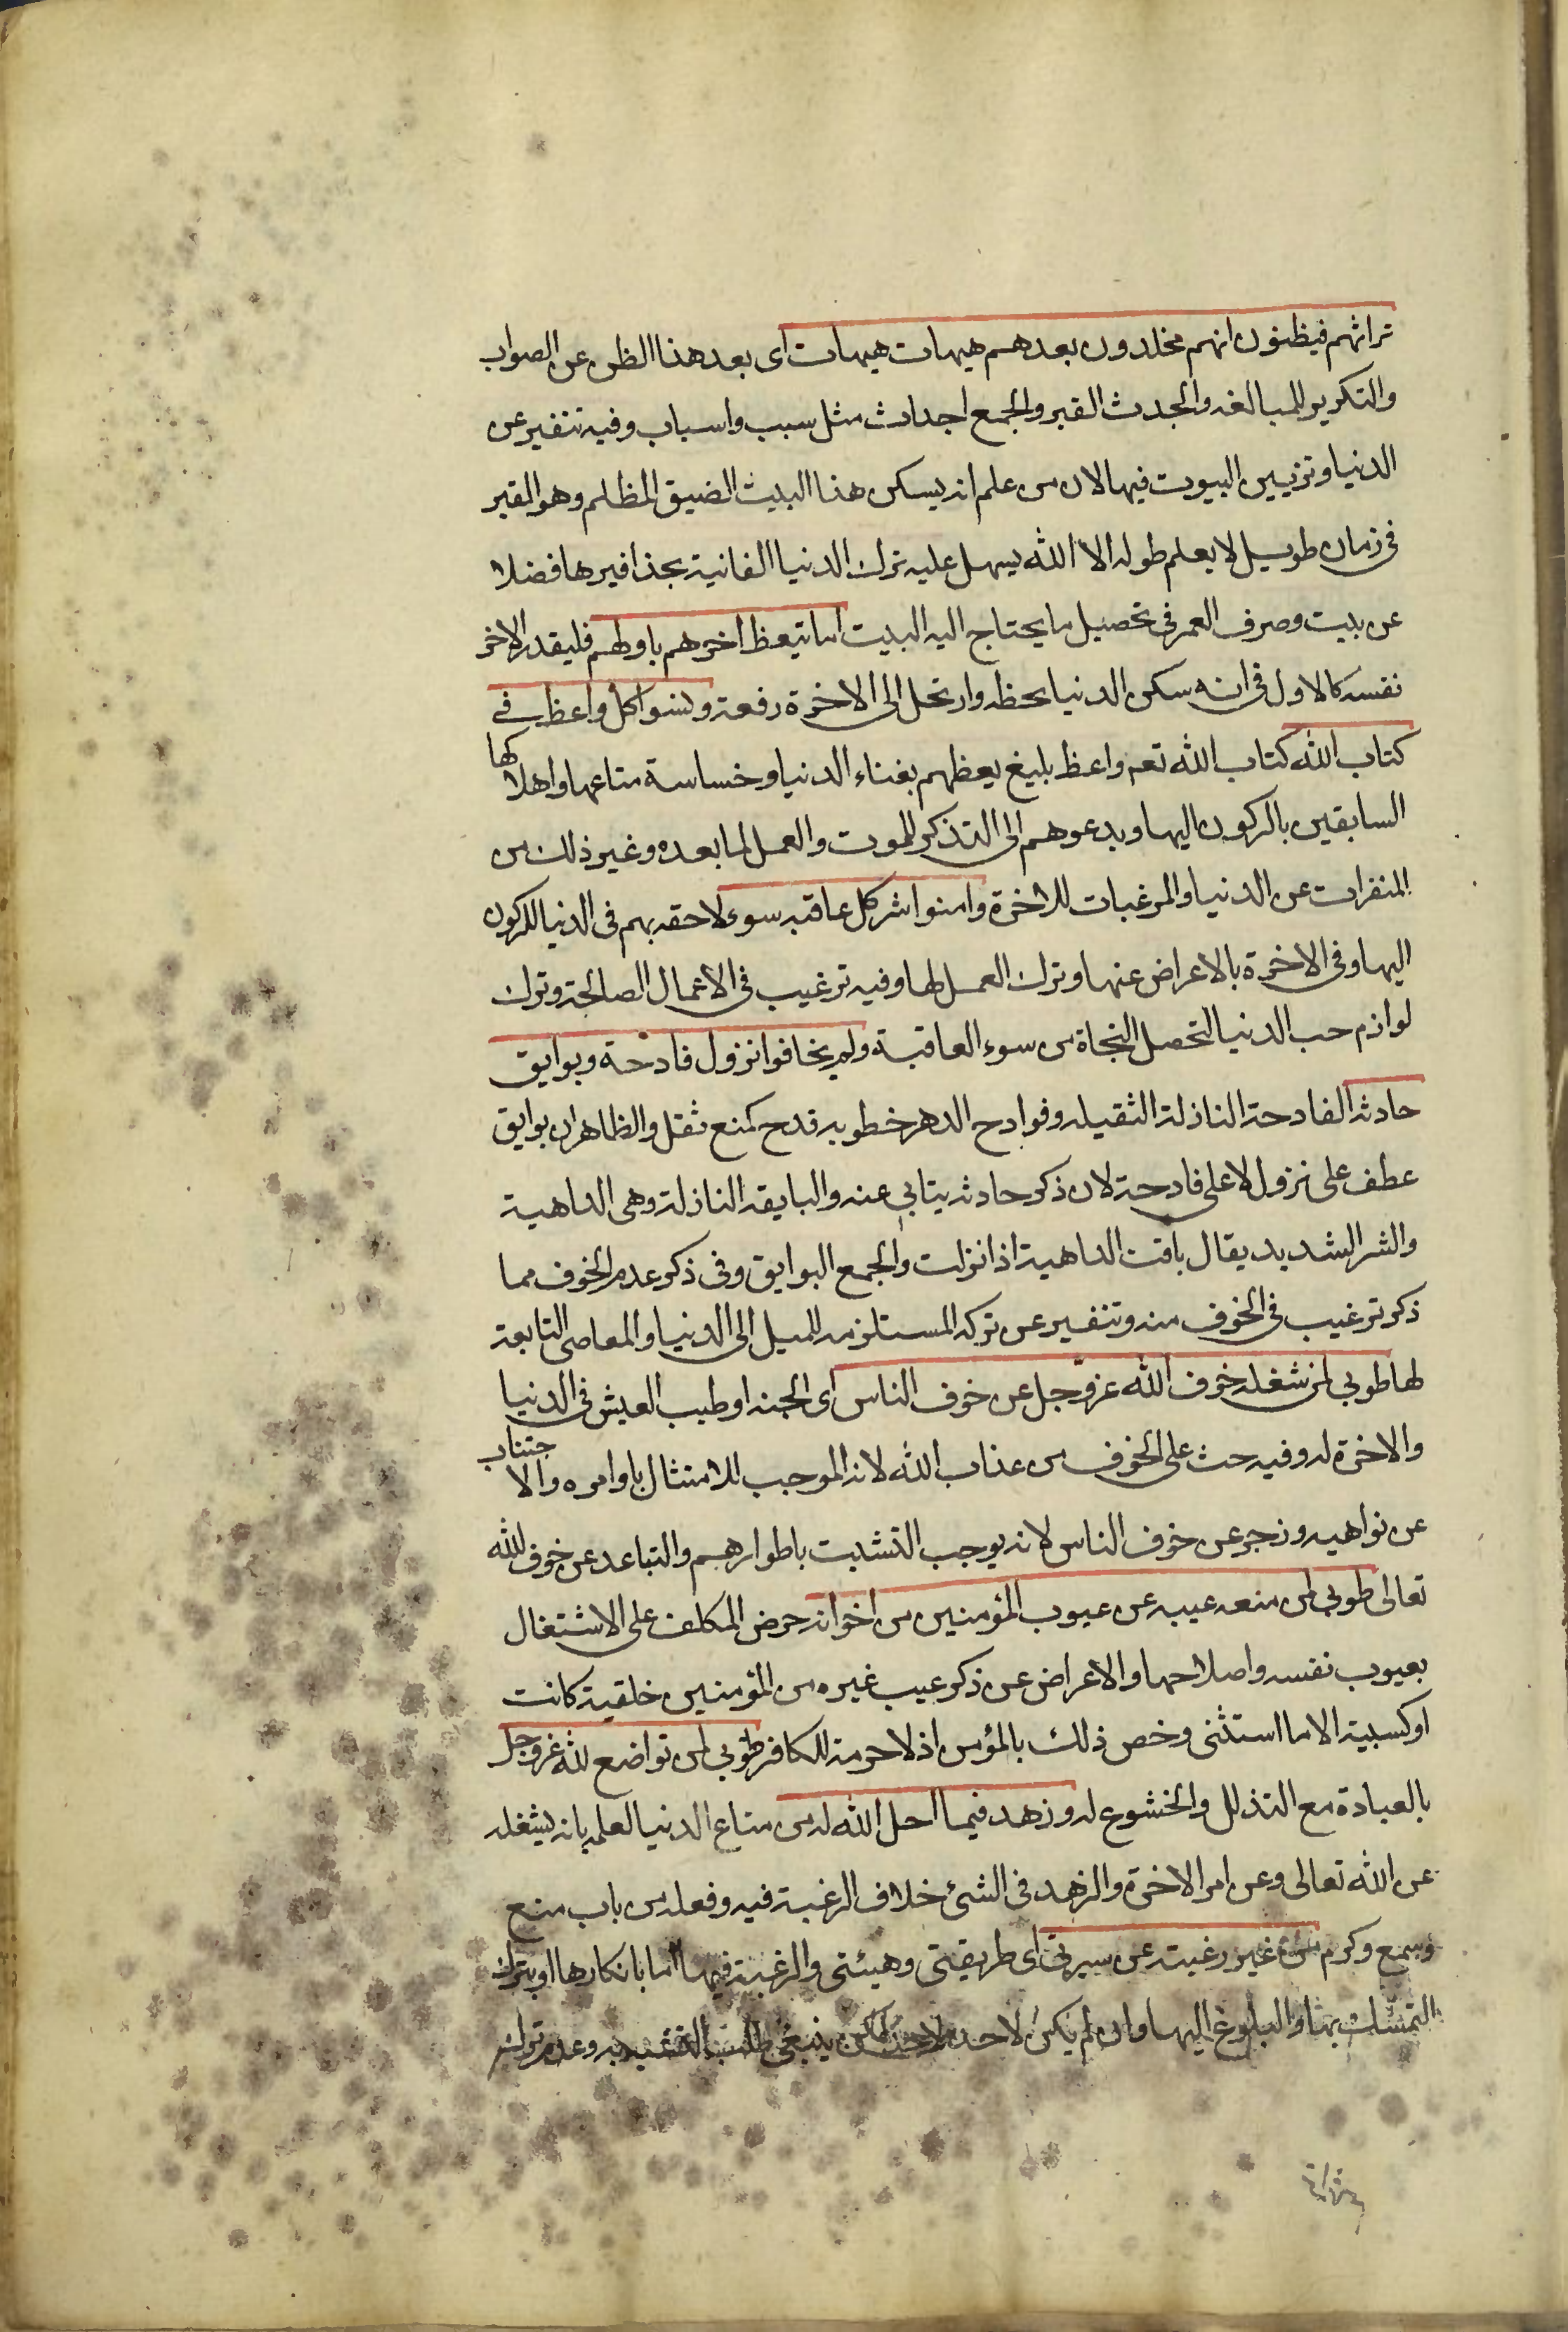 تراثهم فيظنون انهم مخلدون بعدهم هيهات هيهات اى بعد هذا الظن عن الصواب
والتكرير للمبالغه والجدث القبر والجمع اجداث مثل سبب واسباب وفيه تنفير عن
الدنيا وتزيين البيوت فيها لان من علم انه يسكن هذا البيت الضيق المظلم وهو القبر
فى زمان طويل لا يعلم طوله الا الله يسهل عليه ترك الدنيا الفانية بحذافيرها فضلا
عن بيت وصرف العمر فى تحصيل ما يحتاج اليه البيت اما تيعظ اخرهم باولهم فليقدر الاخر
نفسه كالاول فى انه سكن الدنيا لحظه وارتحل الى الاخرة دفعة ونسوا كل واعظ فى
كتاب الله كتاب الله تعم واعظ بليغ يعظهم بفناء الدنيا وخساسة متاعها واهلاكها
السابقين بالركون اليها ويدعوهم الى التذكر للموت والعمل لما بعده وغير ذلك من
المنفرات عن الدنيا والمرغبات للاخرة وامنوا شر كل عاقبه سوء لاحقه بهم فى الدنيا للركون
اليها وفى الاخرة بالاعراض عنها وترك العمل لها وفيه ترغيب فى الاعمال الصالحة وترك
لوازم حب الدنيا لتحصل النجاة من سوء العاقبة ولم يخافوا نزول فادحة وبوايق
حادثه الفادحة النازلة الثقيله وفوادح الدهر خطوبه قدح كمنع ثقل والظاهر ان بوايق
عطف على نزول لا على فادحة لان ذكر حادثه يتابى عنه والبايقه النازلة وهى الداهية
والشر الشديد يقال باقت الداهية اذا نزلت والجمع البوايق وفى ذكر عدم الخوف مما
ذكر ترغيب فى الخوف منه وتنفير عن تركه المستلزم للميل الى الدنيا والمعاصى التابعة
لها طوبى لمن شغله خوف الله عز وجل عن خوف الناس اى الجنه او طيب العيش فى الدنيا
والاخرة له وفيه حث على الخوف من عذاب الله لانه الموجب للامتثال باوامره والاجتناب
عن نواهيه وزجر عن خوف الناس لانه يوجب التشبت باطوارهم والتباعد عن خوف الله
تعالى طوبى لمن منعه عيبه عن عيوب المؤمنين من اخوانه حرض المكلف على الاشتغال
بعيوب نفسه واصلاحها والاعراض عن ذكر عيب غيره من المؤمنين خلقية كانت
او كسبية الا ما استثنى وخص ذلك بالمؤمن اذ لا حرمة للكافر طوبى لمن تواضع لله عز وجل
بالعبادة مع التذلل والخشوع له وزهد فيما احل الله له من متاع الدنيا لعلمه بانه يشغله
عن الله تعالى وعن امر الاخرة والزهد فى الشئ خلاف الرغبة فيه وفعله من باب منع
وسمع وكرم من غير رغبة عن سيرتى اى طريقتى وهيئتى والرغبة فيها اما بانكارها او بترك
التمسك بها والبلوغ اليها وان لم يكن لاحد لكن ينبغى طلب التشبه به وعدم ترك